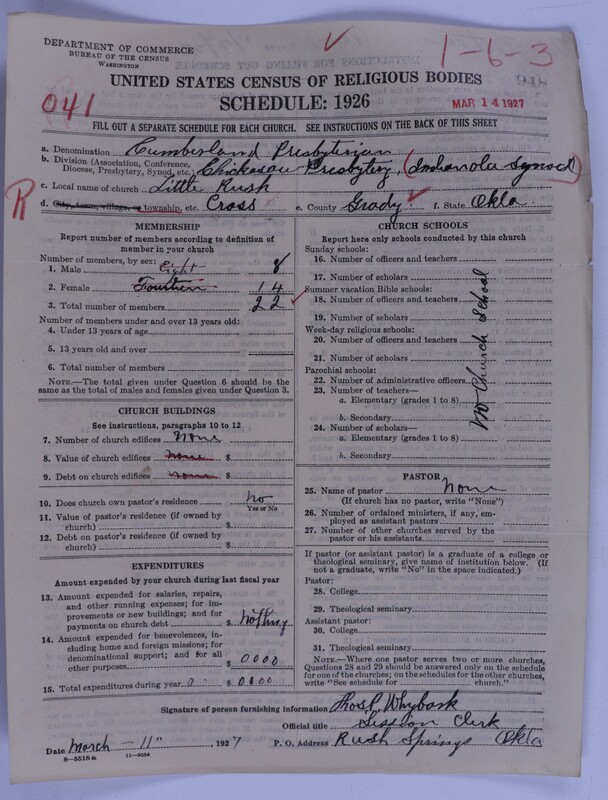 DEPARTMENT OF COMMERCE
BUREAU OF THE CENSUS
WASHINGTON
1-6-3
UNITED STATES CENSUS OF RELIGIOUS BODIES
SCHEDULE: 1926
041
MAR 14 1927
FILL OUT A SEPARATE SCHEDULE FOR EACH CHURCH. SEE INSTRUCTIONS ON THE BACK OF THIS SHEET
a. Denomination Cumberland Presbyterian
b. Division (Association, Conference, Diocese, Presbytery, Synod, etc.) Chickasaw Presbytery, (Indianola Synod)
c. Local name of church Little Rush
R
d. City, town, village, or township, etc. Cross e. County Grady f. State Okla
MEMBERSHIP
Report number of members according to definition of
member in your church
Number of members, by sex:
1. Male Eight 8
2. Female Fourteen 14
3. Total number of members 22
Number of members under and over 13 years old:
4. Under 13 years of age
5. 13 years old and over
6. Total number of members
NOTE.—The total given under Question 6 should be
the same as the total of males and females given under Question 3.
CHURCH BUILDINGS
See instructions, paragraphs 10 to 12
7. Number of church edifices None
8. Value of church edifices None $
9. Debt on church edifices None $
10. Does church own pastor's residence No
Yes or No
11. Value of pastor's residence (if owned by
church) $
12. Debt on pastor's residence (if owned by
church) $
EXPENDITURES
Amount expended by your church during last fiscal year
13. Amount expended for salaries, repairs,
and other running expenses; for im-
provements or new buildings; and for
payments on church debt $ Nothing
14. Amount expended for benevolences, in-
cluding home and foreign missions; for
denominational support; and for all
other purposes $ 0000
15. Total expenditures during year 0 $ 0000
CHURCH SCHOOLS
Report here only schools conducted by this church
Sunday schools:
16. Number of officers and teachers
17. Number of scholars
Summer vacation Bible schools:
18. Number of officers and teachers
19. Number of scholars
Week-day religious schools:
20. Number of officers and teachers
21. Number of scholars
Parochial schools:
22. Number of administrative officers
23. Number of teachers—
a. Elementary (grades 1 to 8)
b. Secondary
24. Number of scholars—
a. Elementary (grades 1 to 8)
b. Secondary
No Church School
PASTOR
25. Name of pastor None
(If church has no pastor, write "None")
26. Number of ordained ministers, if any, em-
ployed as assistant pastors
27. Number of other churches served by the
pastor or his assistants
If pastor (or assistant pastor) is a graduate of a college or
theological seminary, give name of institution below. (If
not a graduate, write "No" in the space indicated.)
Pastor:
28. College
29. Theological seminary
Assistant pastor:
30. College
31. Theological seminary
NOTE.—Where one pastor serves two or more churches,
Questions 28 and 29 should be answered only on the schedule
for one of the churches; on the schedules for the other churches,
write "See schedule for church."
Signature of person furnishing information Whybark
Official title Session Clerk
Date March - 11", 1927 P. O. Address Rush Springs Okla
8-5518a 11-9034